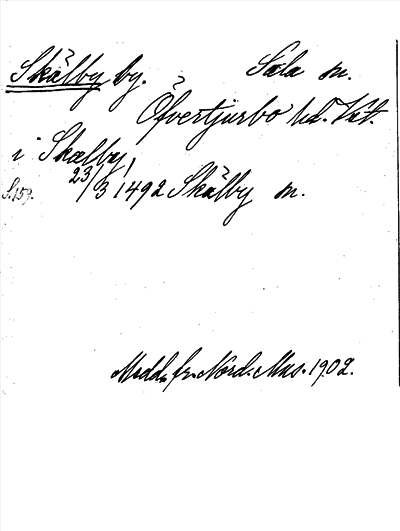 Skälby by. Sala sn.
Öfvertjurbo hd. Vst.
i Skælby
23/3 1492 Skälby m.
S. 159.
Medd. fr. Nord. Mus. 1902.